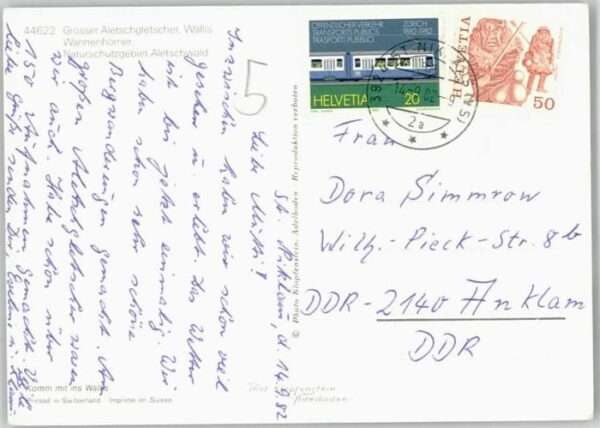 44622 Grosser Aletschgletscher, Wallis
Wannenhörner,
Naturschutzgebiet Aletschwald
St. Niklaus, d. 14.9.82
Liebe Mutti!
Inzwischen haben wir schon viel
gesehen u. erlebt. Das Wetter
ist bis jetzt einmalig. Wir
haben schon sehr schöne
Bergwanderungen gemacht. Am
großen Aletschgletscher waren
wir auch. Habe schon über
150 Aufnahmen gemacht. Viele
liebe Grüße senden Dir, Eveline u.
Komm mit ins Wallis
Printed in Switzerland Imprimé en Suisse
© Photo Klopfenstein, Adelboden - Reproduktion verboten
5
ÖFFENTLICHER VERKEHR ZÜRICH
TRANSPORTS PUBLICS 1882-1982
TRASPORTI PUBBLICI
HELVETIA 20
HELVETIA
50
ST. NIKLAUS
14.-9.82
2a
Frau
Dora Simmrow
Wilh.-Pieck-Str. 8b
DDR-2140 Anklam
DDR
Foto Klopfenstein
Adelboden